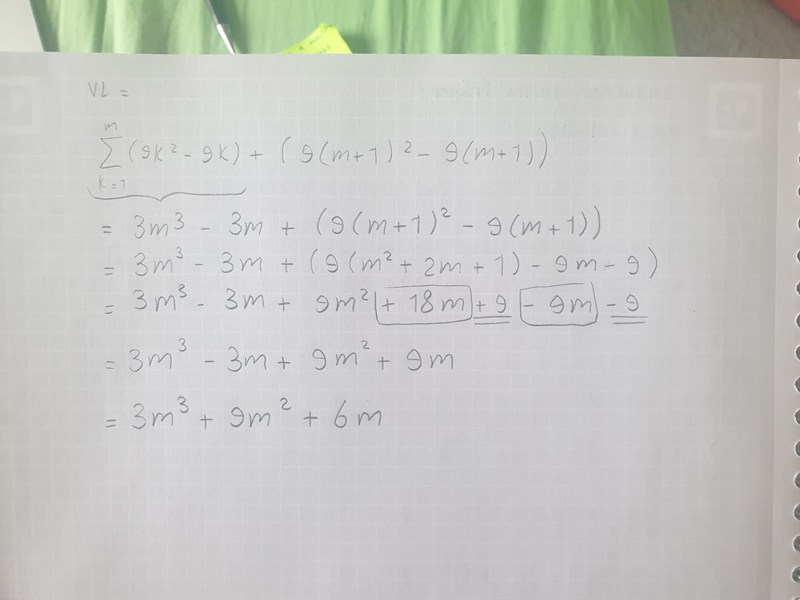 VL =
m
∑ (9k² - 9k) + (9(m+1)² - 9(m+1))
k=1
= 3m³ - 3m + (9(m+1)² - 9(m+1))
= 3m³ - 3m + (9(m² + 2m + 1) - 9m - 9)
= 3m³ - 3m + 9m² + 18m + 9 - 9m - 9
= 3m³ - 3m + 9m² + 9m
= 3m³ + 9m² + 6m